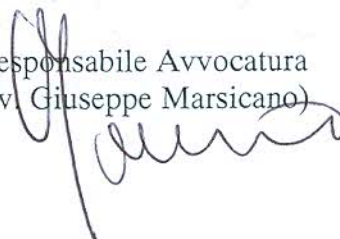 esponsabile Avvocatura
v. Giuseppe Marsicano)